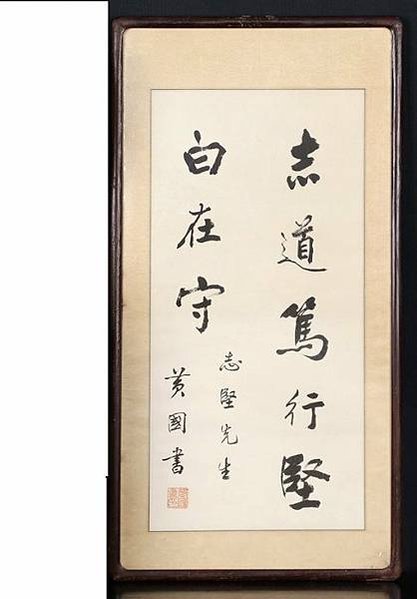 志道篤行堅
白在守
志堅先生
黃國書